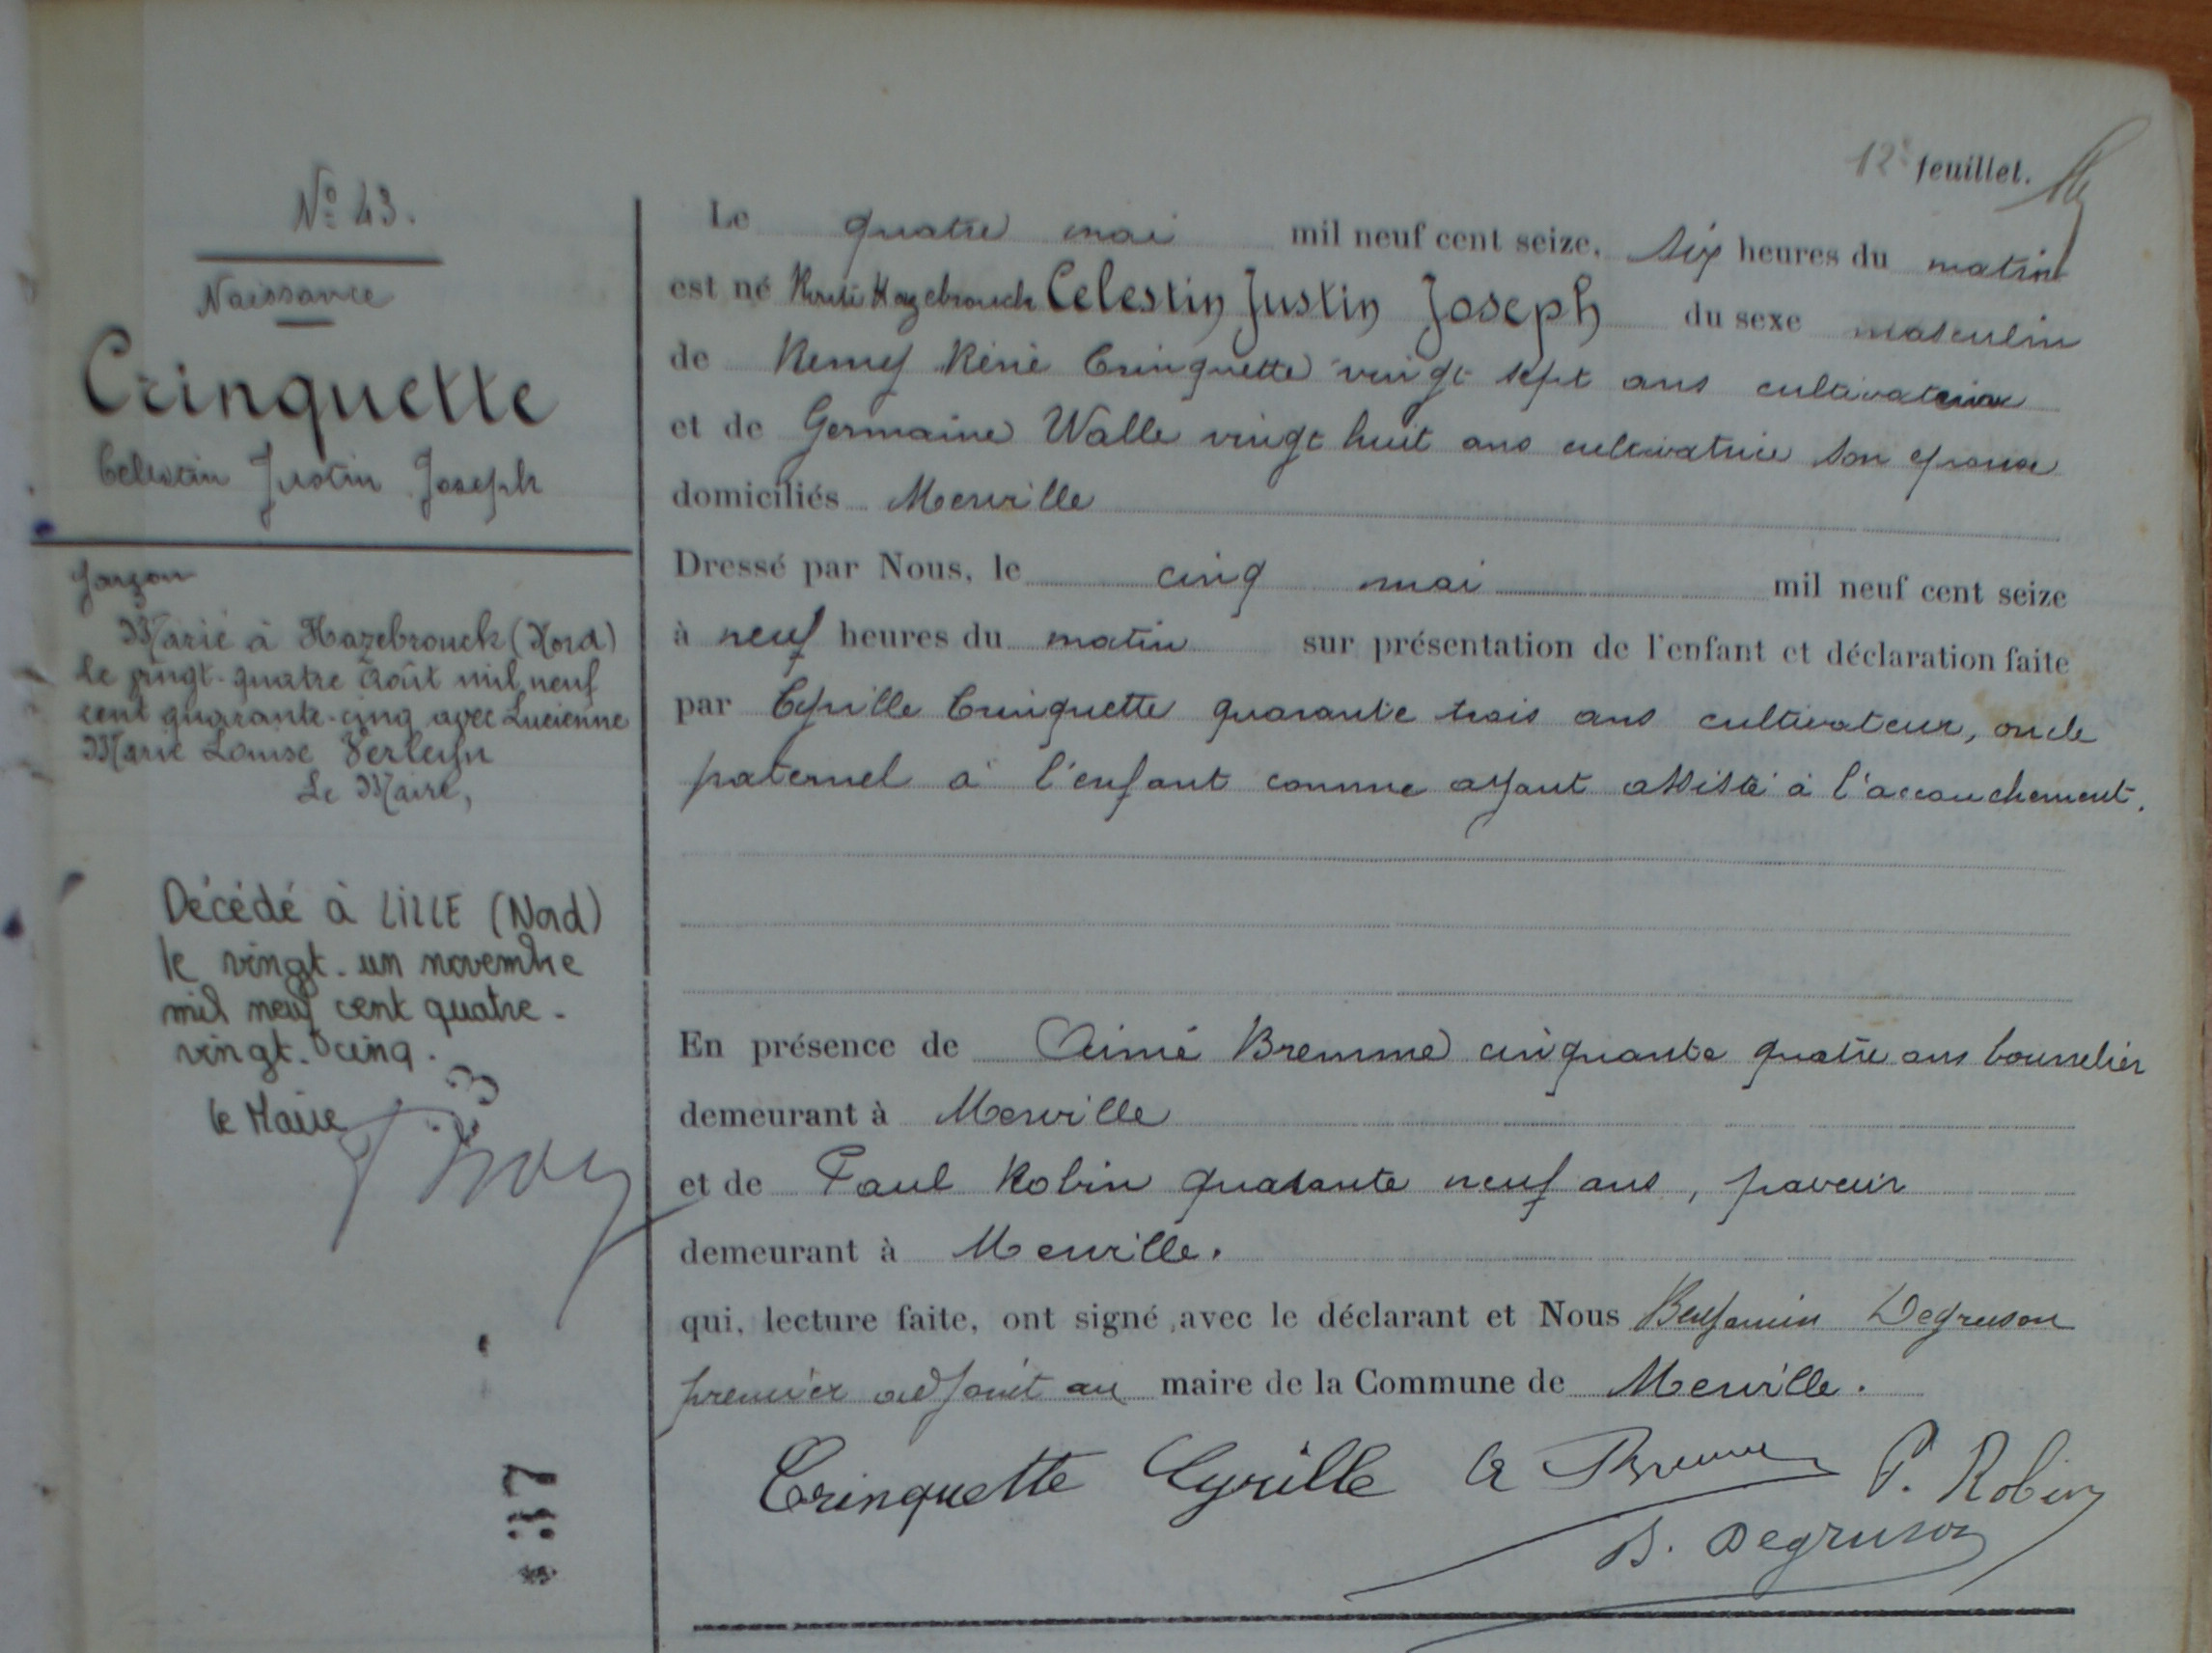 12e feuillet.
No 43.
Naissance
Crinquette
Celestin Justin Joseph
garçon
Marié à Hazebrouck (Nord)
le vingt-quatre Août mil neuf
cent quarante-cinq avec Lucienne
Marie Louise Verleyn
Le Maire,
Décédé à LILLE (Nord)
le vingt-un novembre
mil neuf cent quatre-
vingt-cinq.
le Maire
37
Le quatre mai mil neuf cent seize, six heures du matin
est né Route Hazebrouck Celestin Justin Joseph du sexe masculin
de Remy Réné Crinquette vingt sept ans cultivateur
et de Germaine Walle vingt huit ans cultivatrice son epouse
domiciliés Merville
Dressé par Nous, le cinq mai mil neuf cent seize
à neuf heures du matin sur présentation de l'enfant et déclaration faite
par Cyrille Crinquette quarante trois ans cultivateur, oncle
paternel à l'enfant comme ayant assisté à l'accouchement.
En présence de Aimé Bremme cinquante quatre ans bourrelier
demeurant à Merville
et de Paul Robin quarante neuf ans, paveur
demeurant à Merville.
qui, lecture faite, ont signé avec le déclarant et Nous Benjamin Degruson
premier adjoint au maire de la Commune de Merville.
Crinquette Cyrille A Bremme P. Robin
B. Degruson